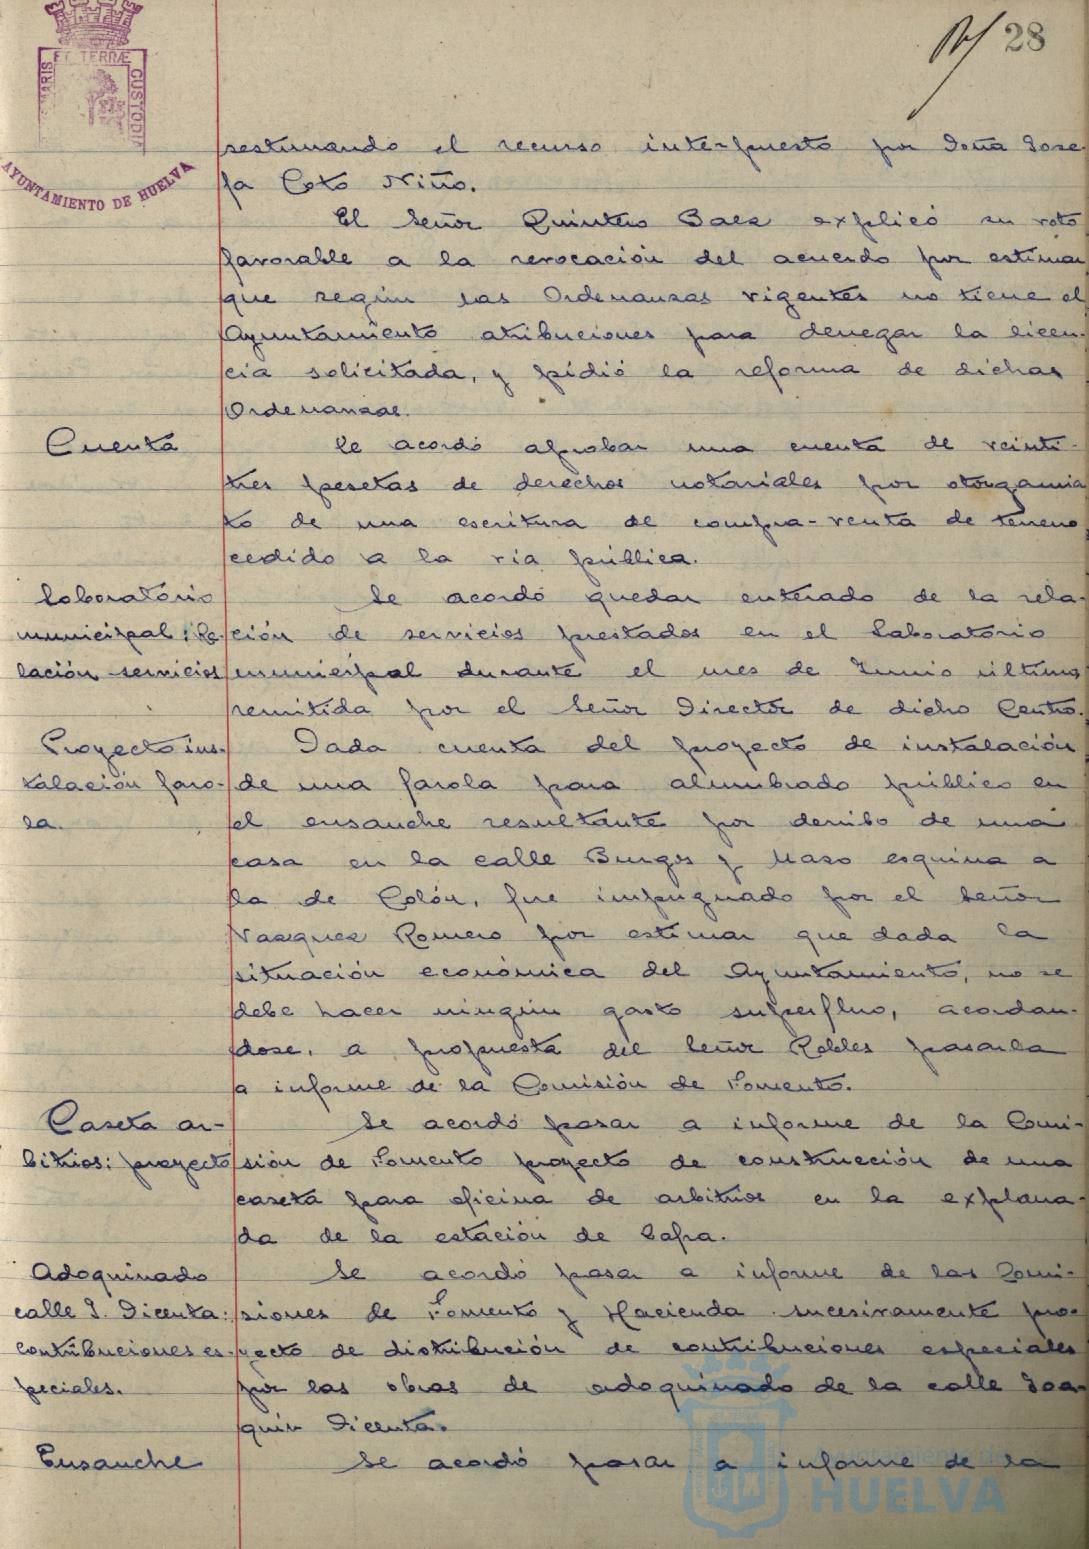 28
PORTUS MARIS ET TERRÆ CUSTODIA
AYUNTAMIENTO DE HUELVA
sestimando el recurso interpuesto por Doña Jose
fa Coto Niño.
El Señor Quintero Baez explicó su voto
favorable a la revocación del acuerdo por estimar
que según las Ordenanzas vigentes no tiene el
Ayuntamiento atribuciones para denegar la licen-
cia solicitada, y pidió la reforma de dichas
Ordenanzas.
Cuenta
Se acordó aprobar una cuenta de veinti-
tres pesetas de derechos notariales por otorgamien
to de una escritura de compra-venta de terreno
cedido a la via pública.
Laboratorio
municipal: Re-
lación servicios
Se acordó quedar enterado de la rela-
ción de servicios prestados en el Laboratorio
municipal durante el mes de Junio último
remitida por el Señor Director de dicho Centro.
Proyecto ins-
talación faro-
la.
Dada cuenta del proyecto de instalación
de una farola para alumbrado público en
el ensanche resultante por derribo de una
casa en la calle Burgos y Mazo esquina a
la de Colón, fue impugnado por el Señor
Vazquez Romero por estimar que dada la
situación económica del Ayuntamiento, no se
debe hacer ningún gasto superfluo, acordan-
dose, a propuesta del Señor Robles pasarla
a informe de la Comisión de Fomento.
Caseta ar-
bitrios: proyecto
Se acordó pasar a informe de la Comi-
sión de Fomento proyecto de construcción de una
caseta para oficina de arbitrios en la explana-
da de la estación de Zafra.
Adoquinado
calle J. Dicenta:
contribuciones es-
peciales.
Se acordó pasar a informe de las Comi-
siones de Fomento y Hacienda sucesivamente pro-
yecto de distribución de contribuciones especiales
por las obras de adoquinado de la calle Joa-
quin Dicenta.
Ensanche
Se acordó pasar a informe de la
Ayuntamiento de
HUELVA